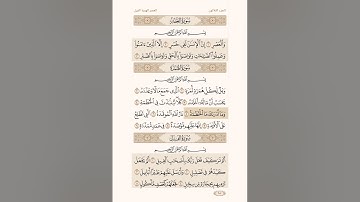 الجزء الثلاثون
سُورَةُ العَصْرِ
بِسْمِ ٱللَّهِ ٱلرَّحْمَٰنِ ٱلرَّحِيمِ
وَٱلْعَصْرِ ١ إِنَّ ٱلْإِنسَٰنَ لَفِى خُسْرٍ ٢ إِلَّا ٱلَّذِينَ ءَامَنُوا۟
وَعَمِلُوا۟ ٱلصَّٰلِحَٰتِ وَتَوَاصَوْا۟ بِٱلْحَقِّ وَتَوَاصَوْا۟ بِٱلصَّبْرِ ٣
سُورَةُ الهُمَزَةِ
بِسْمِ ٱللَّهِ ٱلرَّحْمَٰنِ ٱلرَّحِيمِ
وَيْلٌ لِّكُلِّ هُمَزَةٍ لُّمَزَةٍ ١ ٱلَّذِى جَمَعَ مَالًا وَعَدَّدَهُۥ ٢
يَحْسَبُ أَنَّ مَالَهُۥٓ أَخْلَدَهُۥ ٣ كَلَّا ۖ لَيُنۢبَذَنَّ فِى ٱلْحُطَمَةِ ٤
وَمَآ أَدْرَىٰكَ مَا ٱلْحُطَمَةُ ٥ نَارُ ٱللَّهِ ٱلْمُوقَدَةُ ٦ ٱلَّتِى تَطَّلِعُ
عَلَى ٱلْأَفْـِٔدَةِ ٧ إِنَّهَا عَلَيْهِم مُّؤْصَدَةٌ ٨ فِى عَمَدٍ مُّمَدَّدَةٍۭ ٩
سُورَةُ الفِيلِ
بِسْمِ ٱللَّهِ ٱلرَّحْمَٰنِ ٱلرَّحِيمِ
أَلَمْ تَرَ كَيْفَ فَعَلَ رَبُّكَ بِأَصْحَٰبِ ٱلْفِيلِ ١ أَلَمْ يَجْعَلْ
كَيْدَهُمْ فِى تَضْلِيلٍ ٢ وَأَرْسَلَ عَلَيْهِمْ طَيْرًا أَبَابِيلَ ٣
تَرْمِيهِم بِحِجَارَةٍ مِّن سِجِّيلٍ ٤ فَجَعَلَهُمْ كَعَصْفٍ مَّأْكُولٍۭ ٥